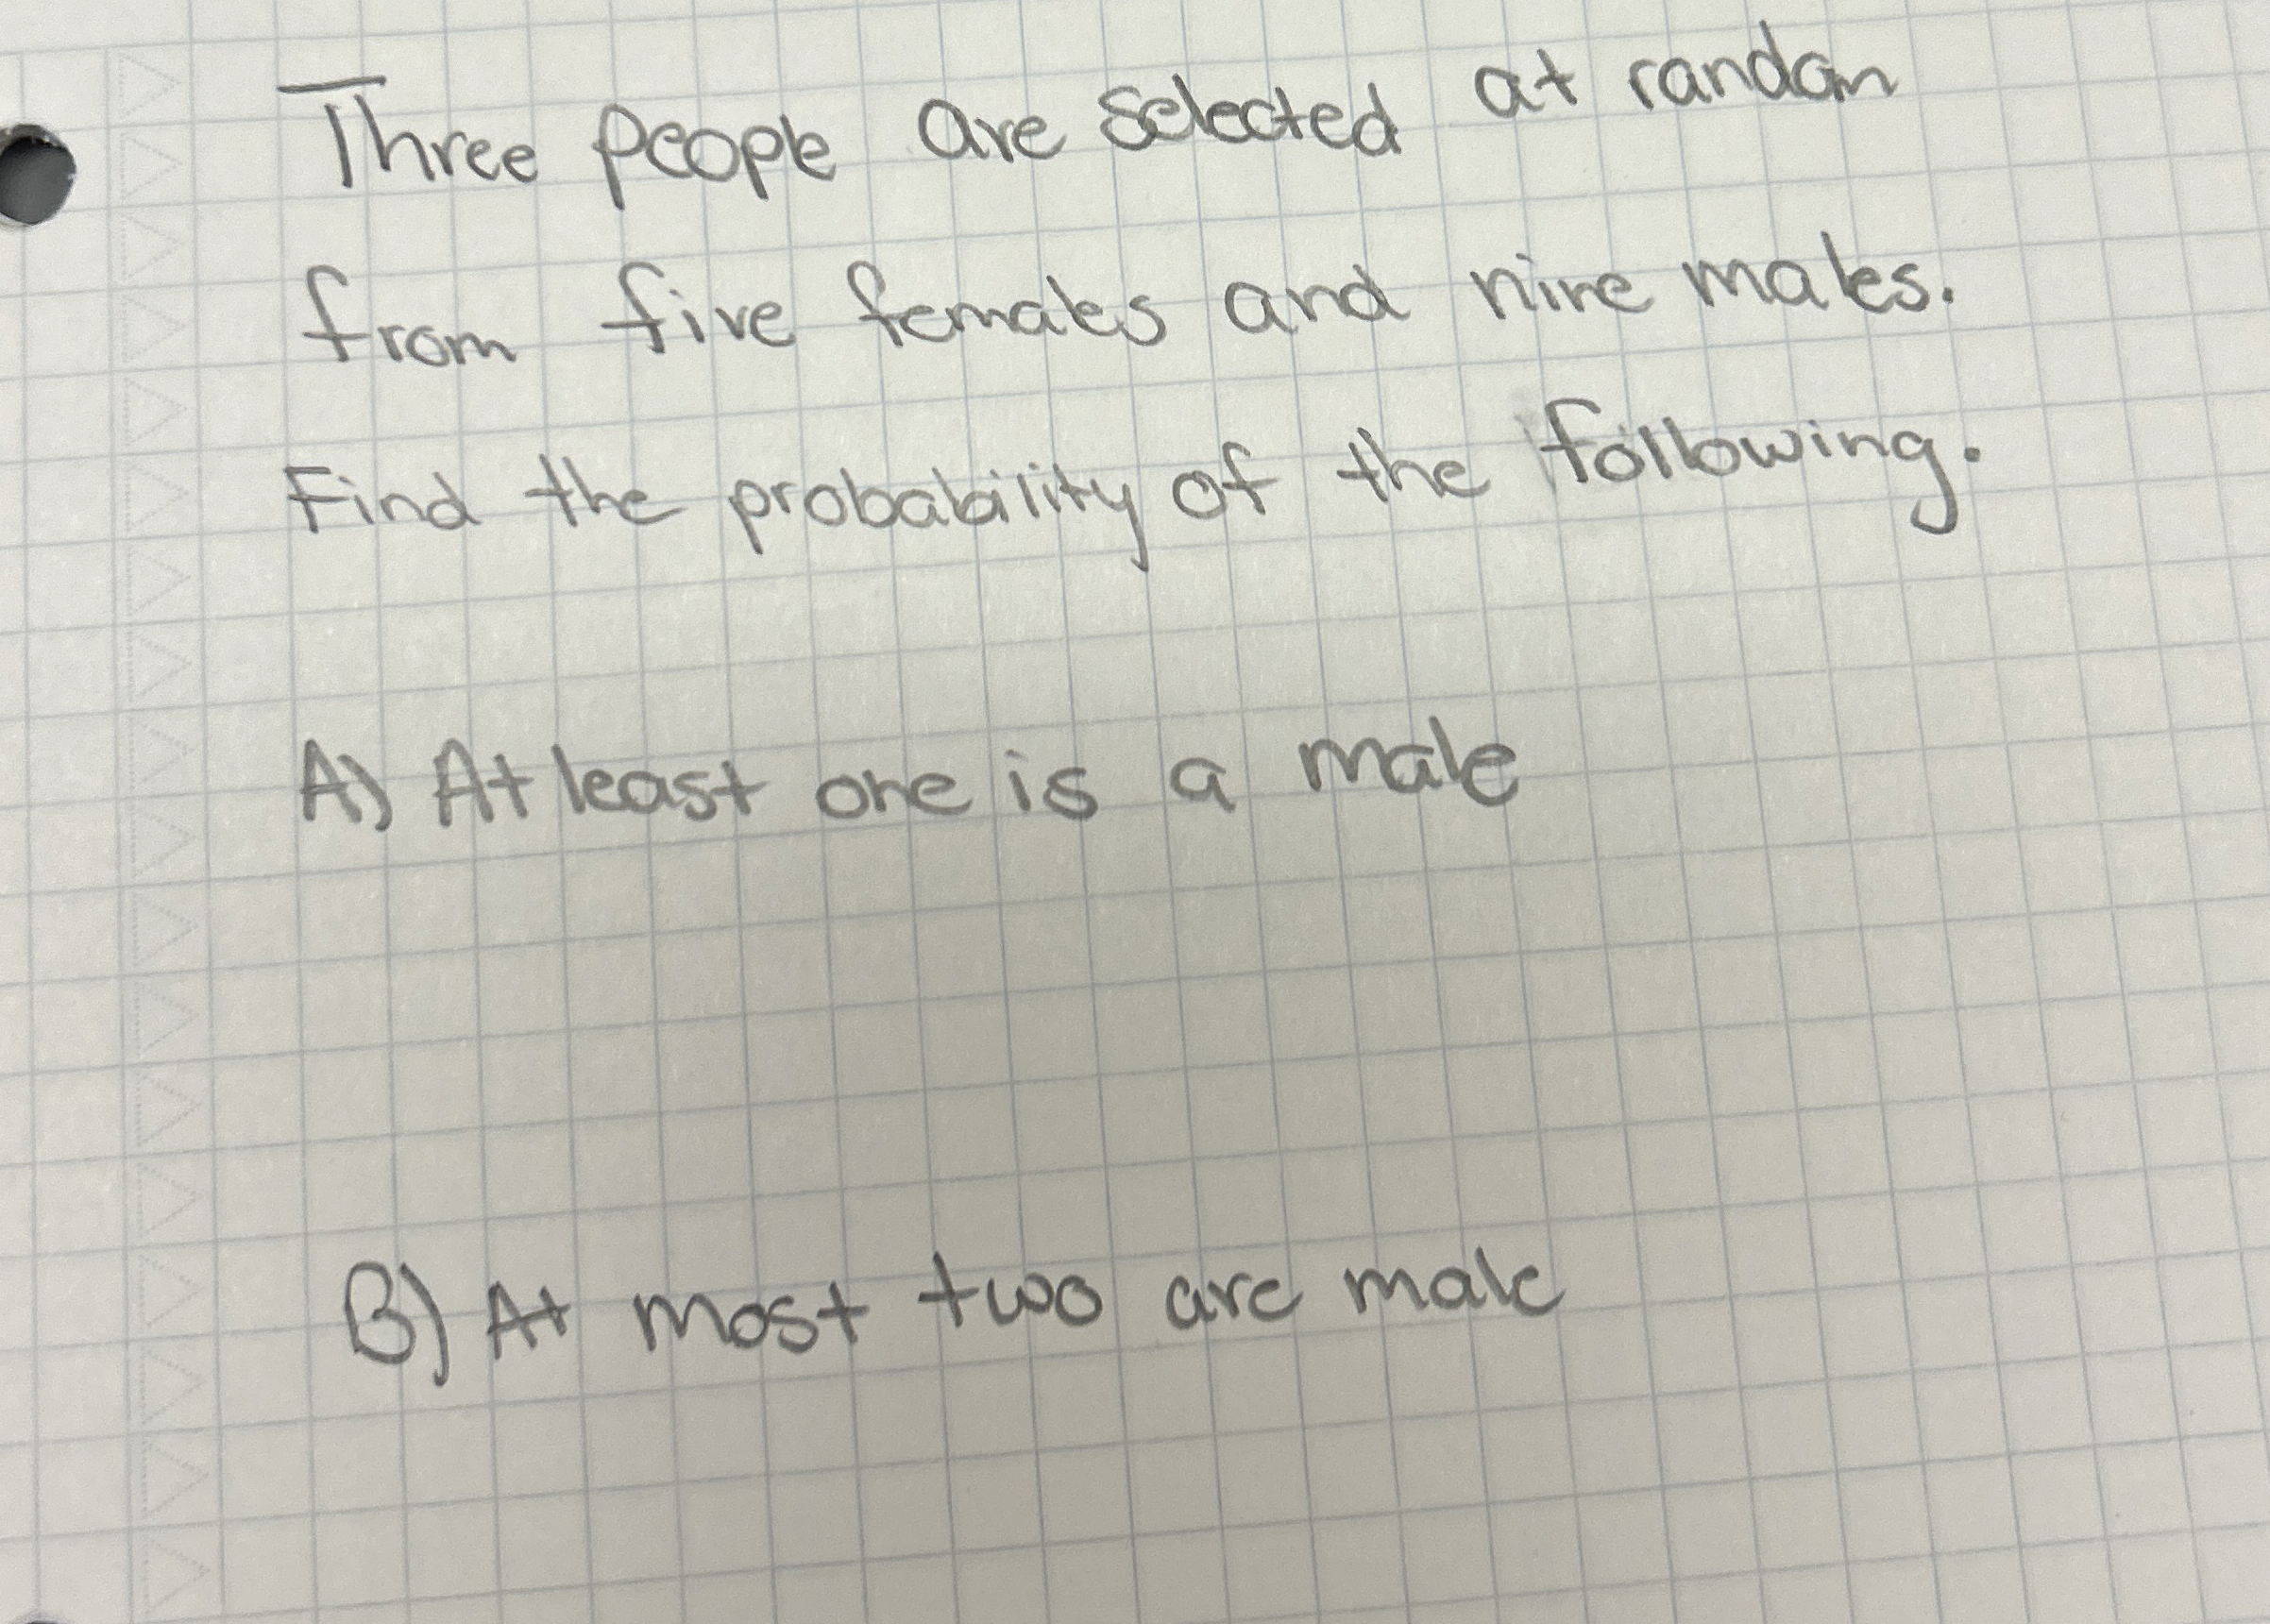 Three people are selected at random
from five females and nine males.
Find the probability of the following.
A) At least one is a male
B) At most two are male